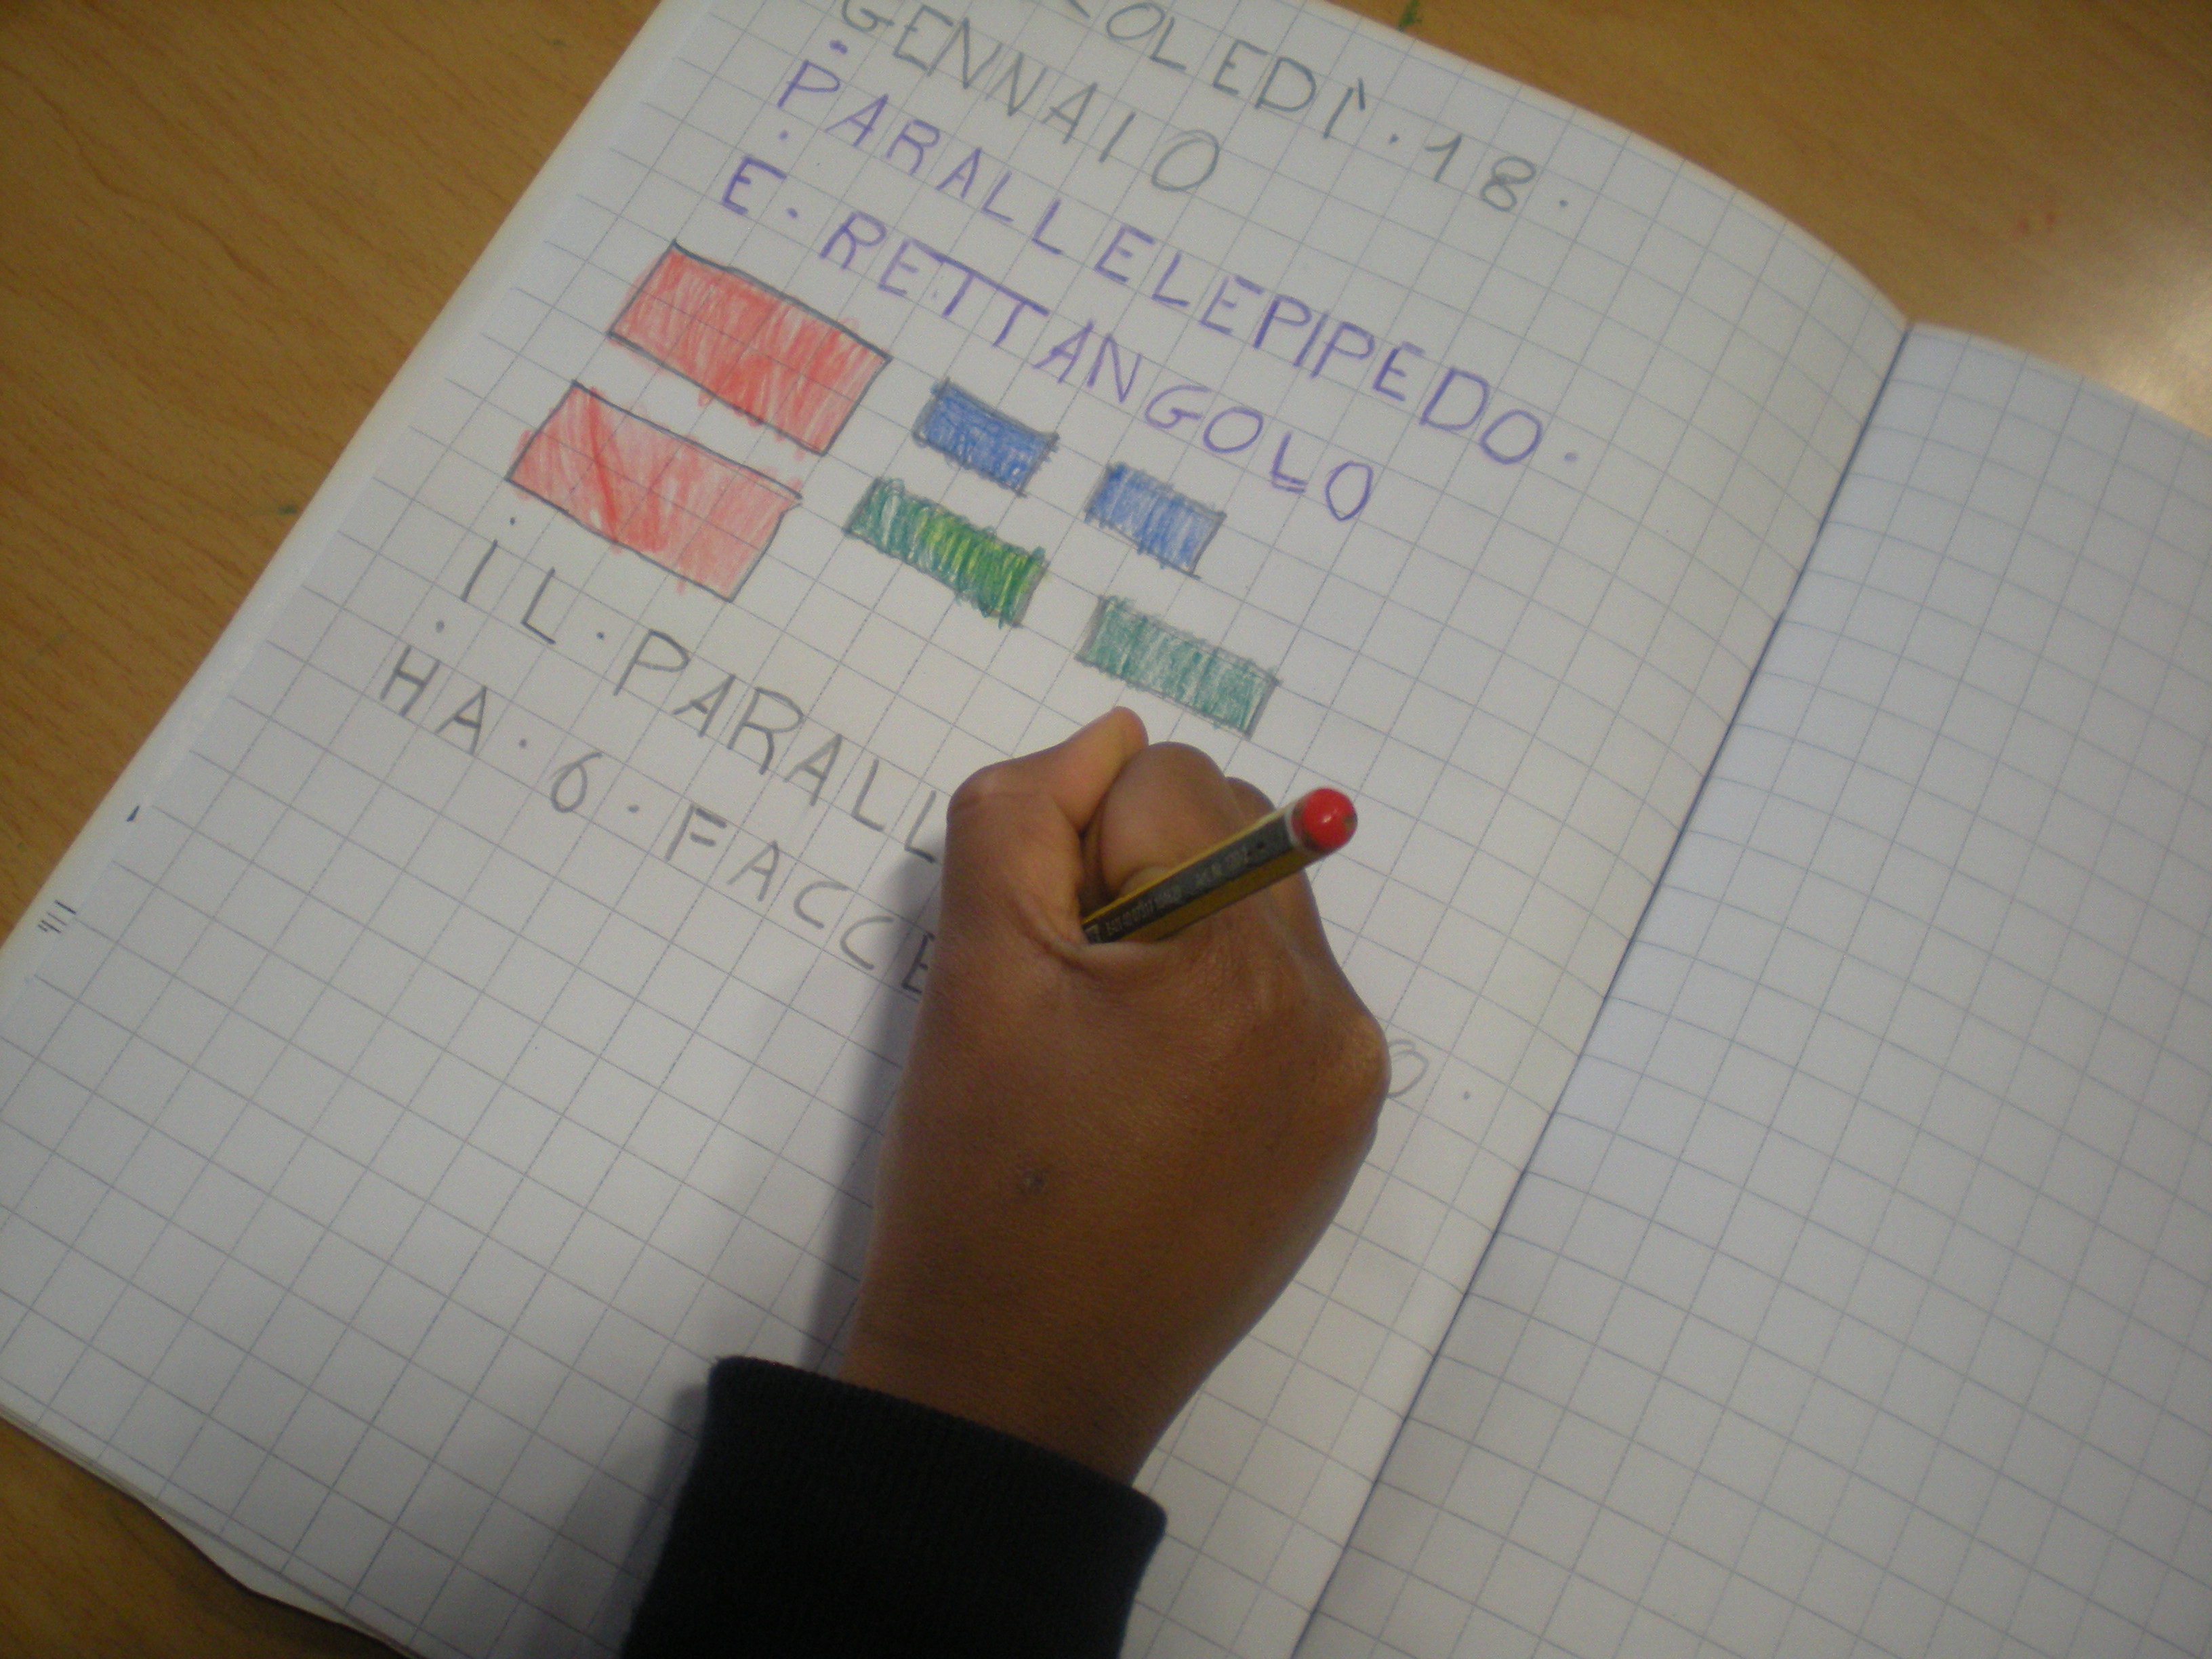 COLEDÌ.18.
GENNAIO
PARALLELEPIPEDO.
E.RETTANGOLO
IL.PARALL
HA.6.FACCE
O.